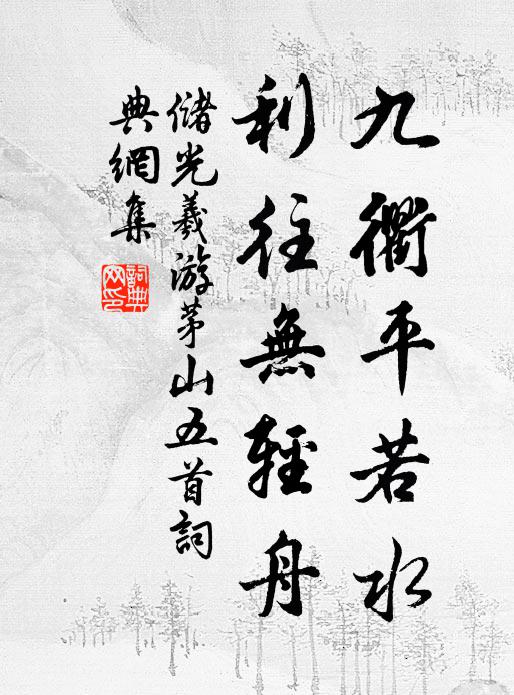 九衢平若水
利往無輕舟
儲光羲游茅山五首詞
典網集
詞典網印